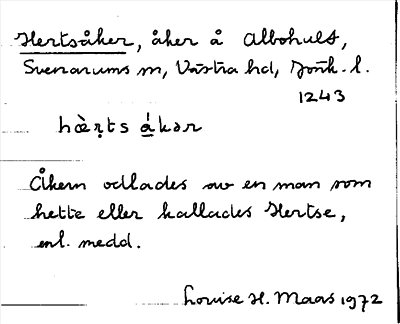 Hertsåker, åker å Albohult,
Svenarums sn, Västra hd, Jönk. l.
1243
hæ̀r̥ts á̱kər
Åkern odlades av en man som
hette eller kallades Hertse,
enl. medd.
Louise H. Maas 1972